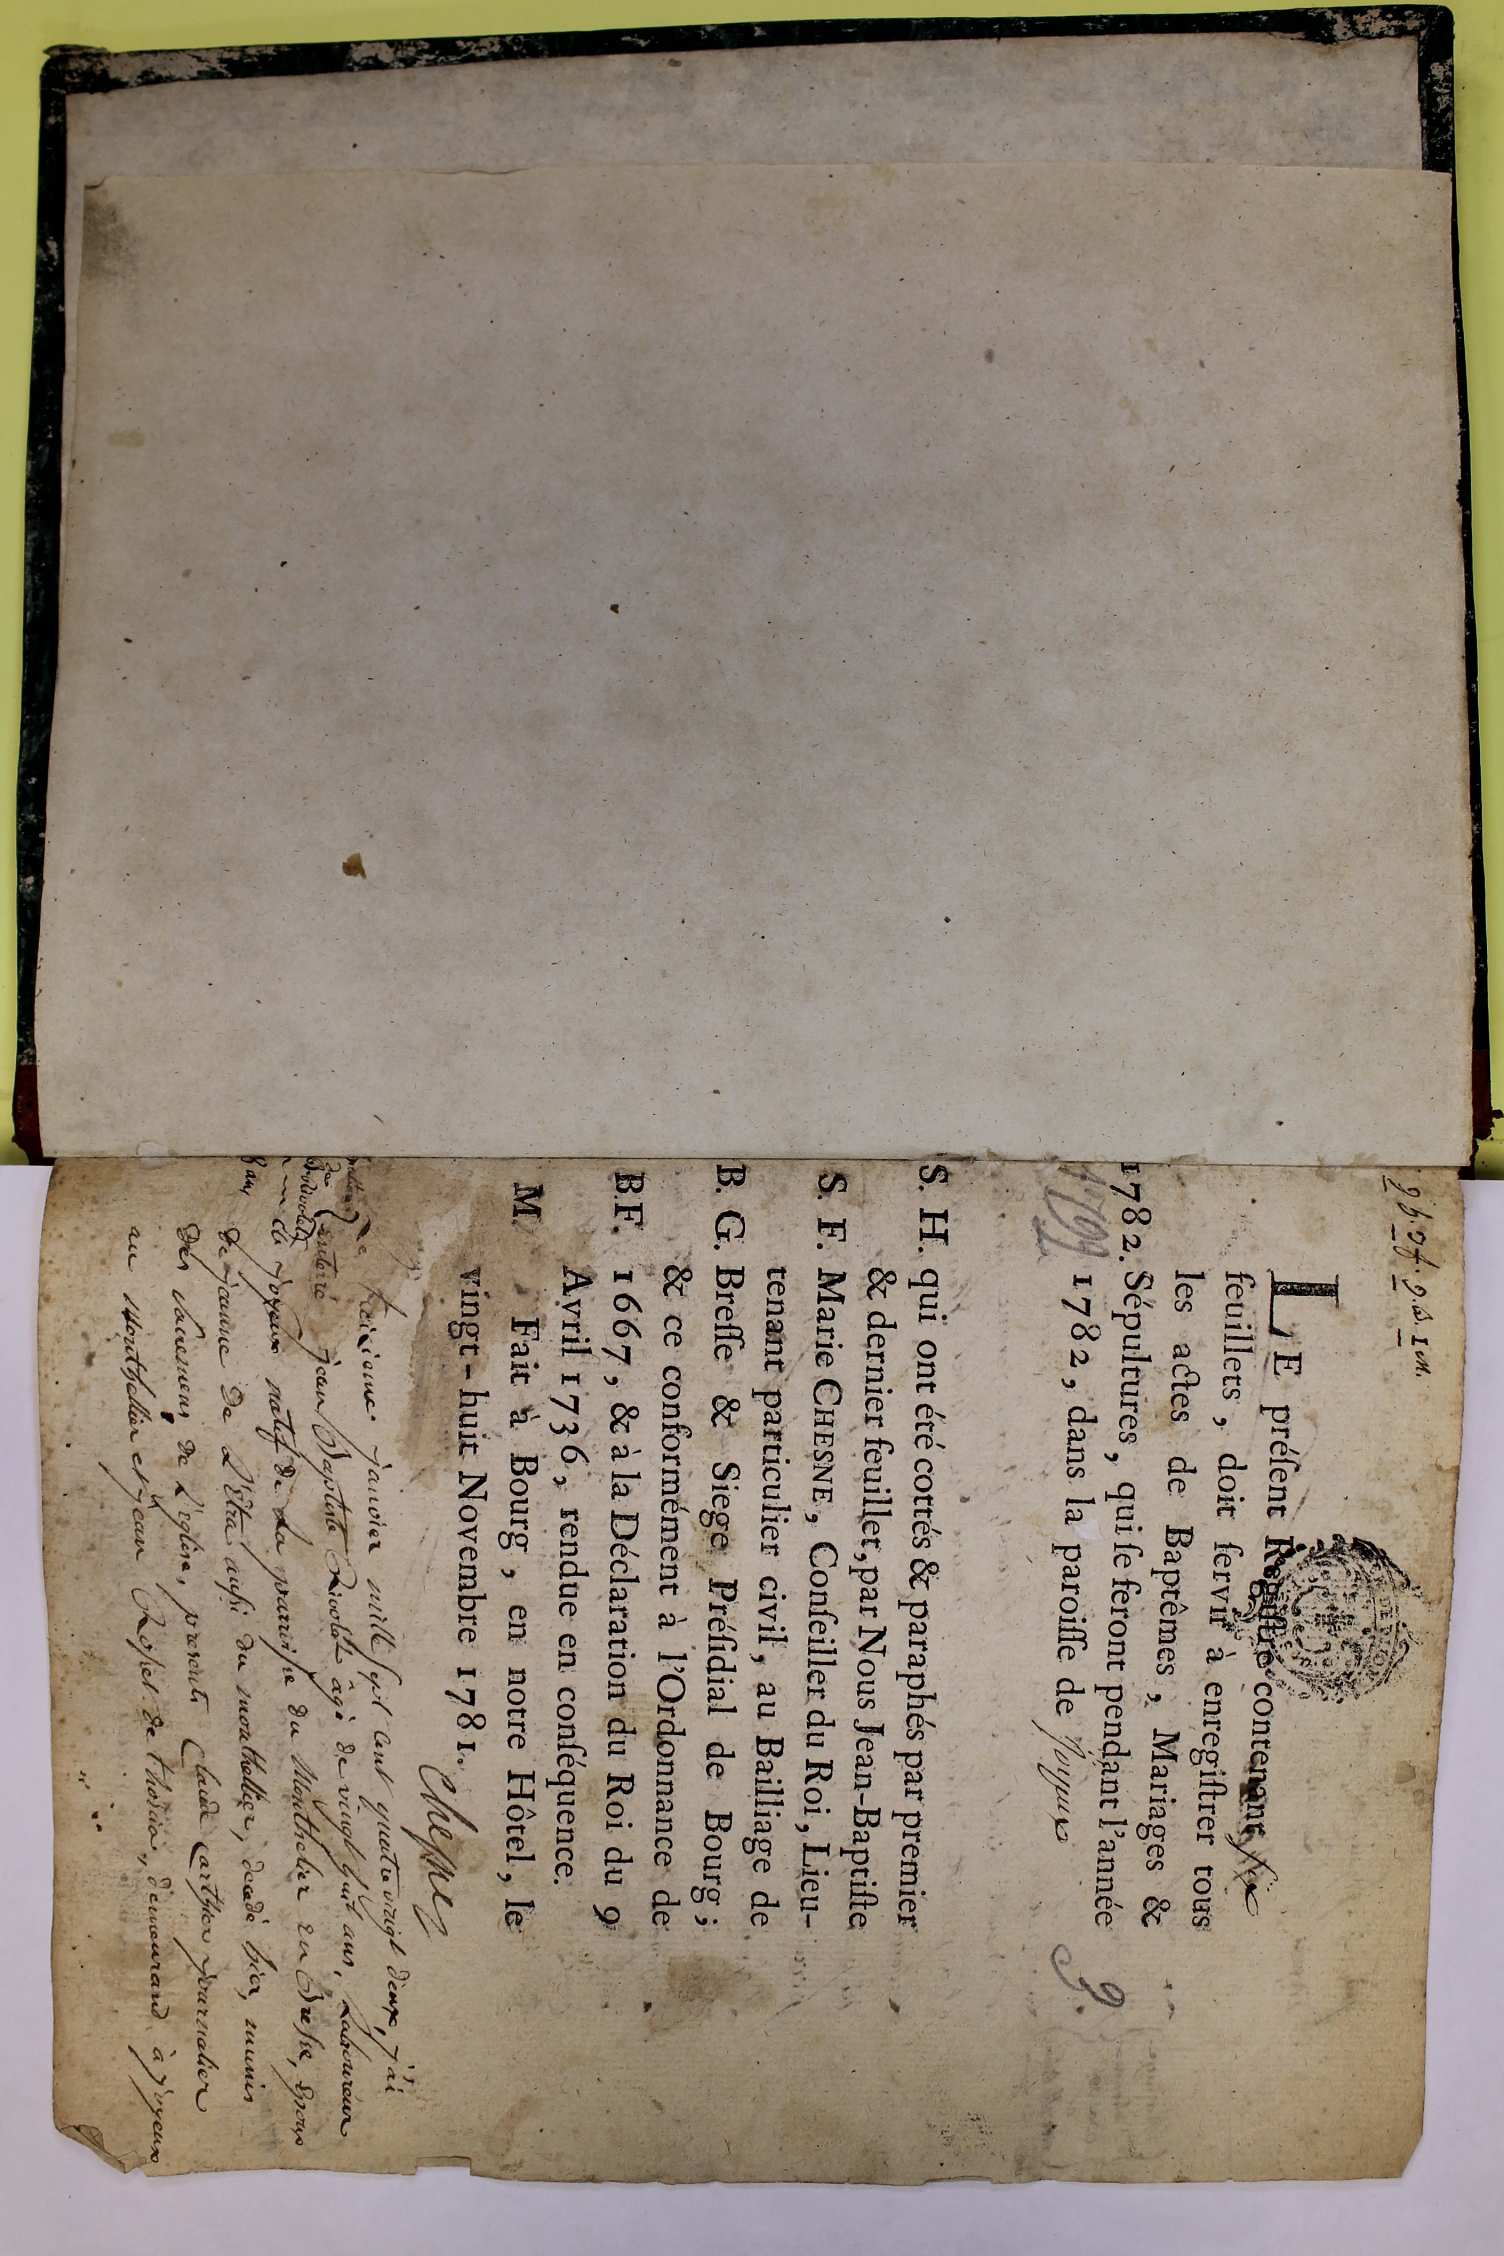 9 b. 3 f. 9. s. 1 m.
LE préſent Regiſtre contenant ſix
feuillets, doit ſervir à enregiſtrer tous
les actes de Baptêmes, Mariages &
1782. Sépultures, qui ſe feront pendant l'année
1782, dans la paroiſſe de Joyeux
9.
S. H. qui ont été cottés & paraphés par premier
& dernier feuillet, par Nous Jean-Baptiſte
S. F. Marie CHESNE, Conſeiller du Roi, Lieu-
tenant particulier civil, au Bailliage de
B. G. Breſſe & Siege Préſidial de Bourg;
& ce conformément à l'Ordonnance de
B.F. 1667, & à la Déclaration du Roi du 9
Avril 1736, rendue en conſéquence.
M. Fait à Bourg, en notre Hôtel, le
vingt-huit Novembre 1781.
Chesne
Le treizieme janvier mille sept cent quatre vingt deux, j'ai
enterré jean Baptiste Rivolet âgé de vingt huit ans, Laboureur
à joyeux natif de La parroisse du Monthelier en Bresse, Epoux
de jeanne de L'Etra aussi du monthellier, decedé hier, munis
des sacremens de L'eglise, presents Claude Carthier journalier
au Monthellier et jean Rosset de thoiria, demeurand à joyeux